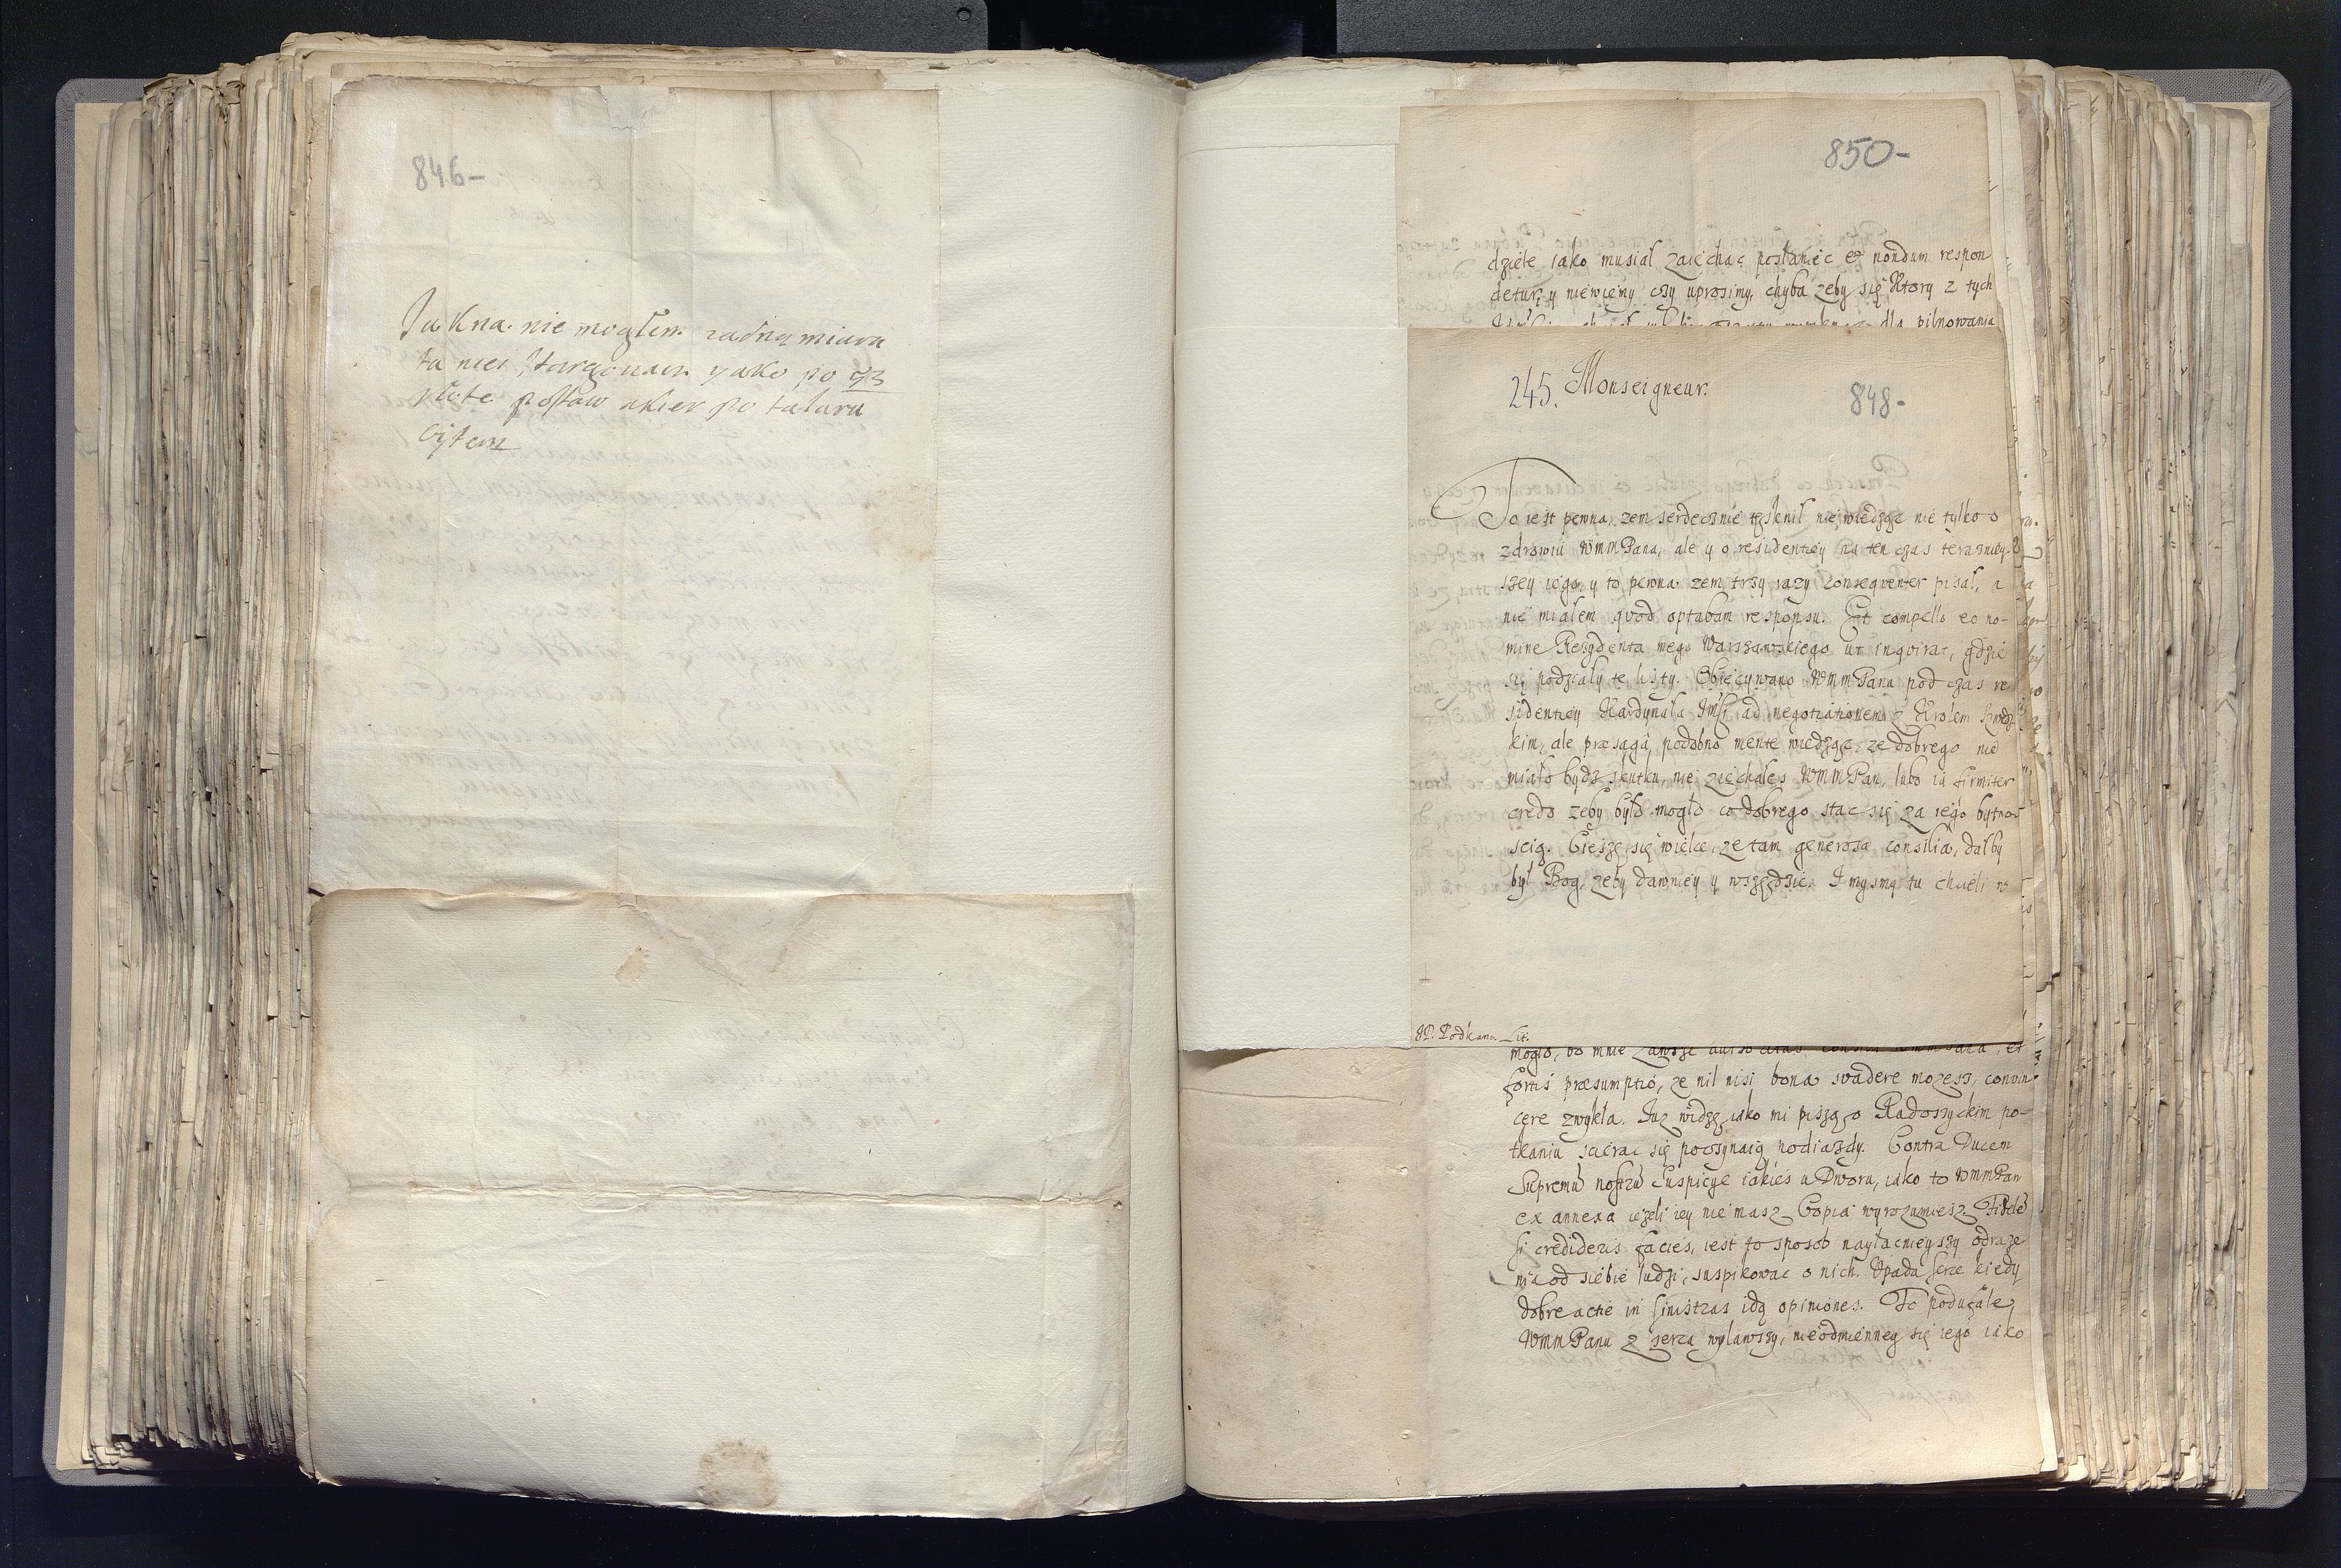 846-
Sukna nie mogłem zadną miarą
taniei stargowac yako po 93
złote postaw akier po talaru
bitem
850-
dziele iako musiał zaiechac posłaniec et nondum respon
detur, y niewiemy czy uprosimy, chyba zeby się Ktory z tych
dla pilnowania
245. Monseigneur.
848-
To iest pewna, zem serdecznie tęsknił nie wiedząc nie tylko o
zdrowiu WMMPana, ale y o residentiey na ten czas terazniey-
szey iego, y to pewna zem trzy razy consequenter pisał, a
nie miałem quod optabam responsu. Et compello eo no-
mine Rezydenta mego Warszawskiego ut inquirat, gdzie
się podziały te listy. Obiecywano WMMPana pod czas re
sidentiey Kardynała JMści ad negotiationem z Krolem Szwedz
kim, ale præsaga podobno mente wiedząc, ze dobrego nic
miało bydz skutku, nie ziechałes WMMPan, lubo ia firmiter
credo zeby było mogło co dobrego stac się za iego bytno
scią. Cieszę się wielce, ze tam generosa consilia, dałby
był Bog, zeby dawniey y wszędzie. I mysmy tu chcieli w
JP. Podkanc. Lit:
mogło, bo mnie zawsze authoritas consilii WMMPana, et
fortis præsumptio, ze nil nisi bona svadere mozesz, convin
cere zwykła. Juz widzę, iako mi piszą o Radoszyckim po-
tkaniu scierac się poczynaią podiazdy. Contra Ducem
Supremu nostru suspicye iakies u Dworu, iako to WMMPan
ex annexa iezeli iey nie masz Copia wyrozumiesz. Fidele
si credideris facies, iest to sposob nayłacnieyszy odraze
nia od siebie ludzi, suspikowac o nich. Upada serce kiedy
dobre actie in sinistras idą opiniones. To poduffale
WMMPanu z serca wylawszy, nieodmienney się iego iako